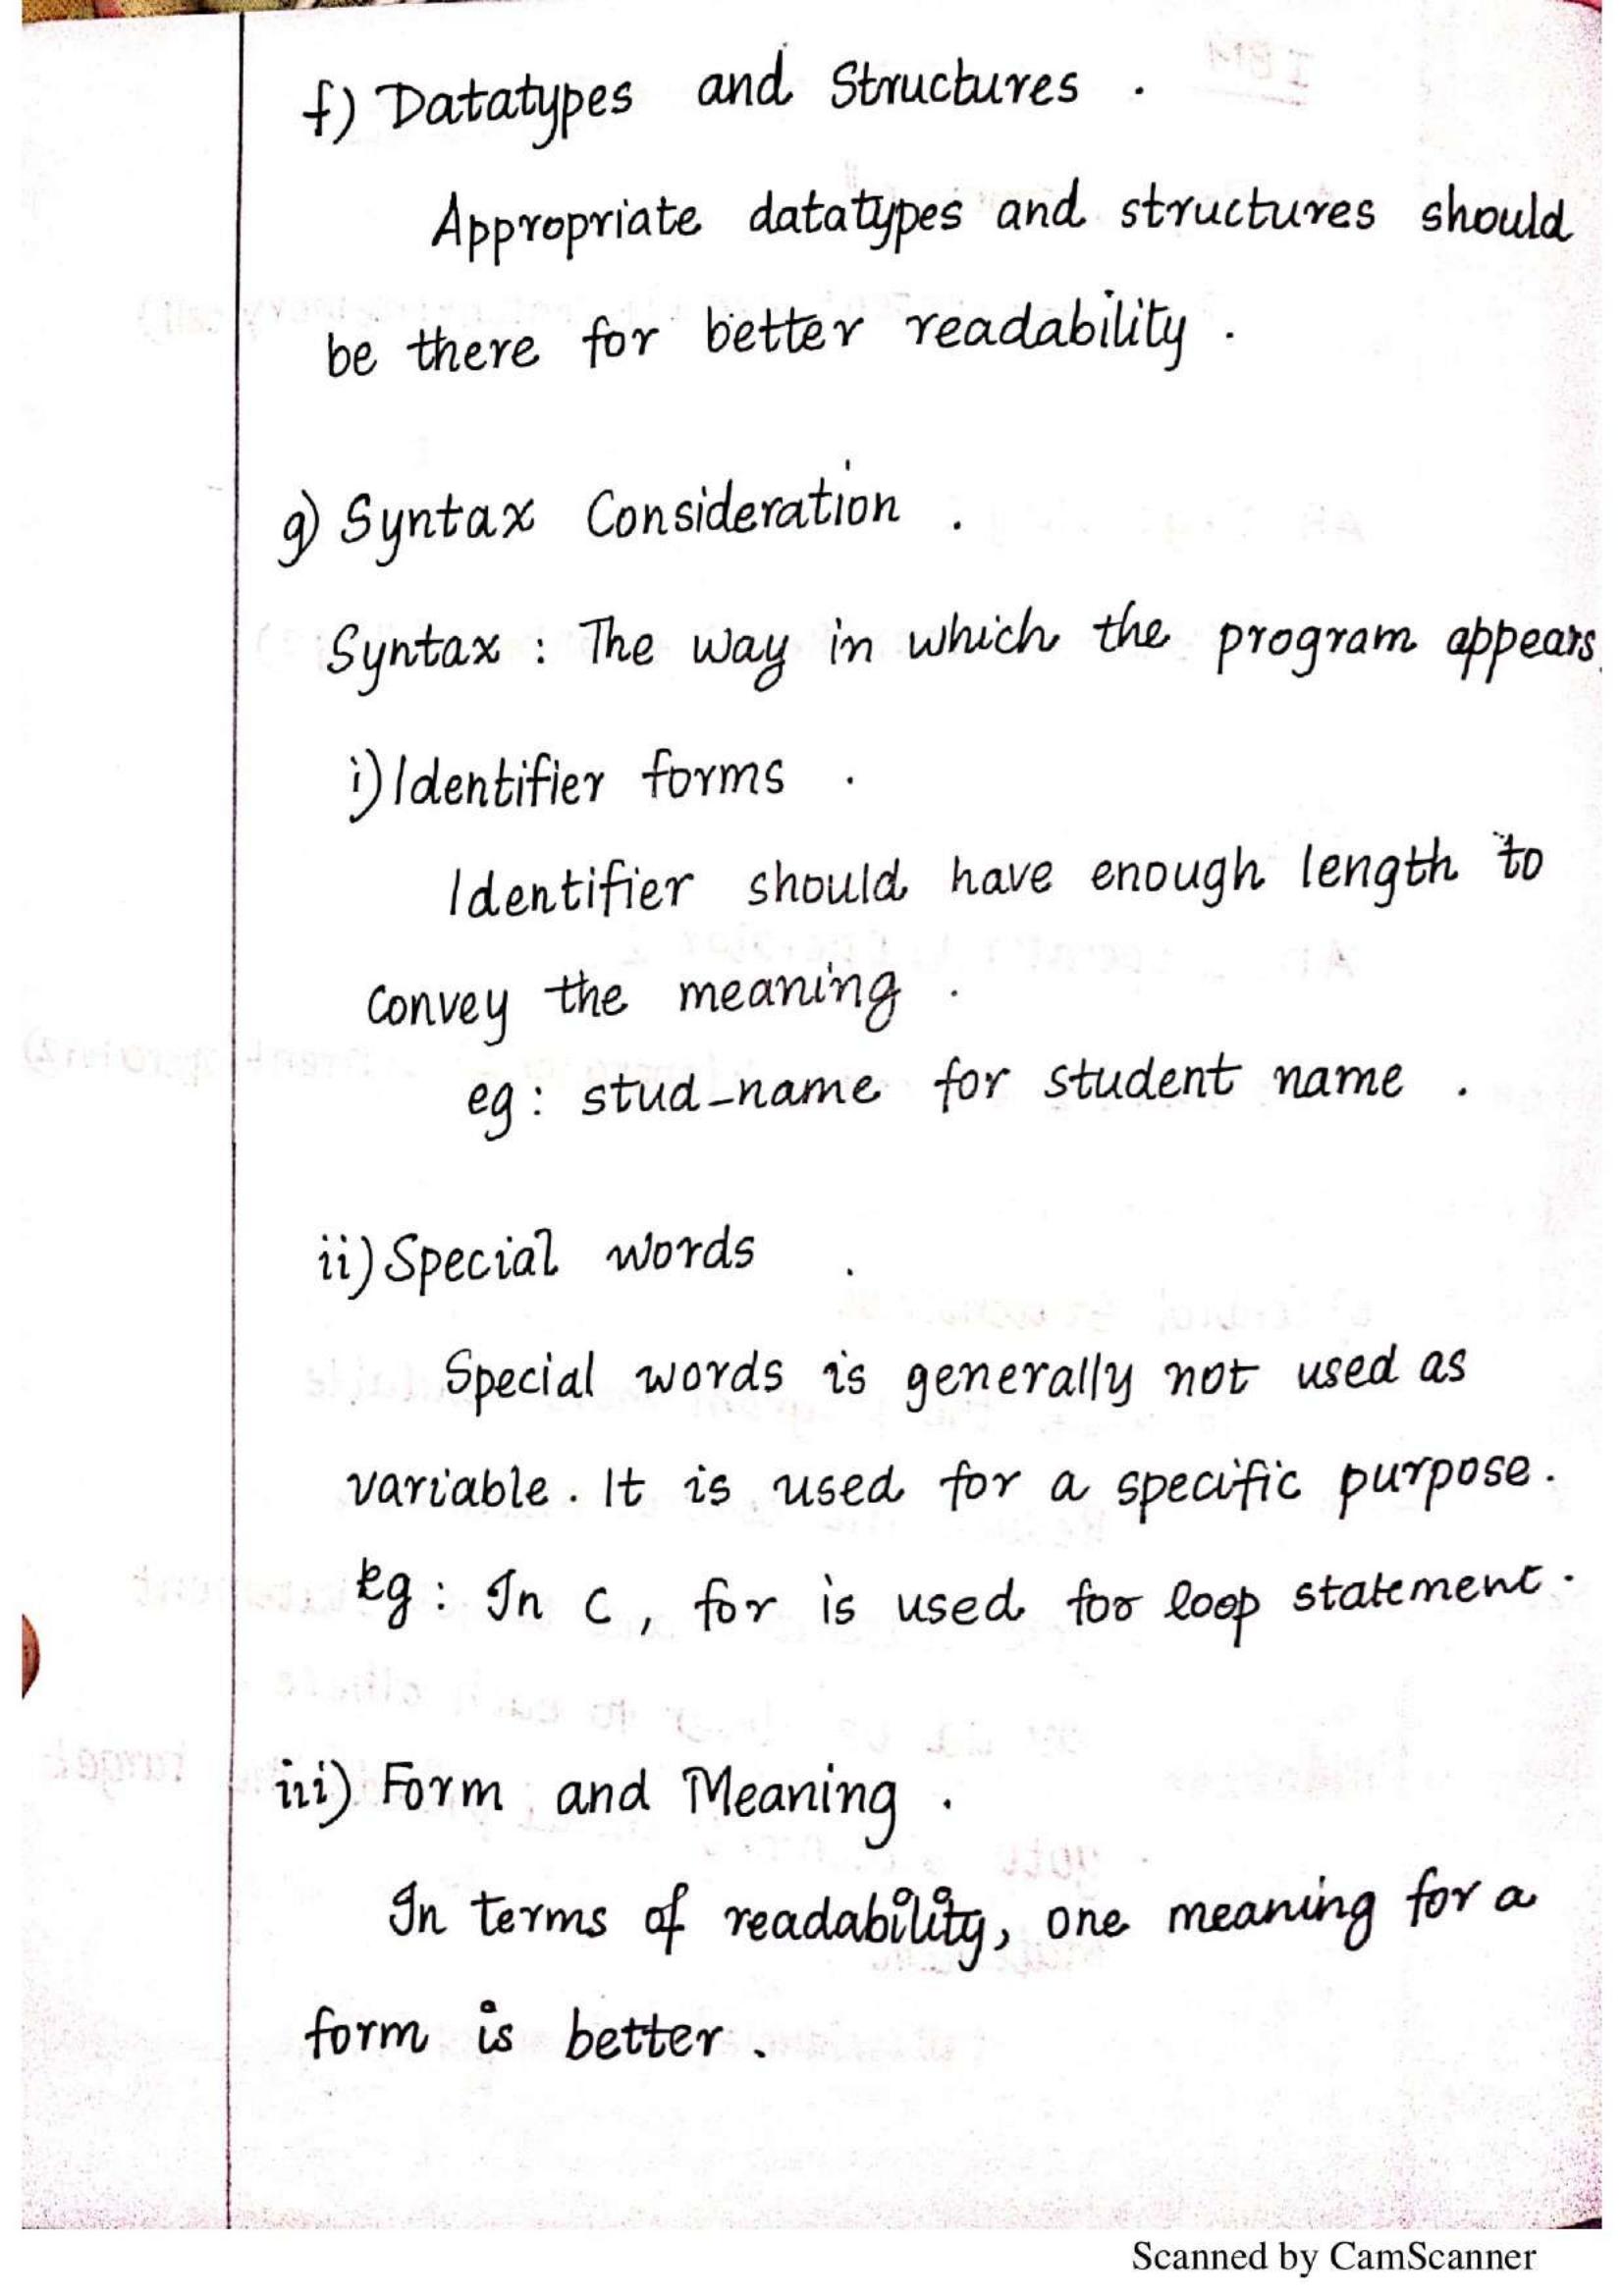 f) Datatypes and Structures .
Appropriate datatypes and structures should
be there for better readability .
g) Syntax Consideration .
Syntax : The way in which the program appears.
i) Identifier forms .
Identifier should have enough length to
convey the meaning .
eg : stud_name for student name .
ii) Special words .
Special words is generally not used as
variable . It is used for a specific purpose .
Eg : In C , for is used for loop statement .
iii) Form and Meaning .
In terms of readability, one meaning for a
form is better .
Scanned by CamScanner